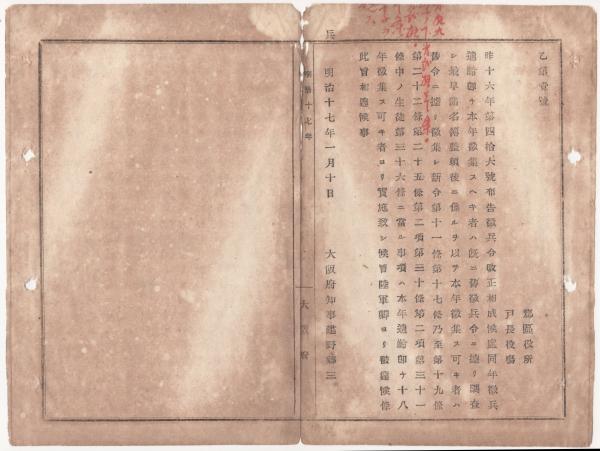 乙第壹號
郡區役所
戸長役塲
昨十六年第四拾六號布告徵兵令改正相成候處同年徵兵
適齡卽チ本年徵集スヘキ者ハ旣ニ舊徵兵令ニ據リ調査
シ最早籤名簿整頓後ニ係ルヲ以テ本年徵集ス可キ者ハ
舊令ニ據リ徵集シ新令第十一條第十七條乃至第十九條
第二十二條第二十五條第二項第三十條第二項第三十一
條中ノ生徒第三十六條ニ當ル事項ハ本年適齡卽チ十八
年徵集ス可キ者ヨリ實施致シ候旨陸軍卿ヨリ被達候條
此旨相達候事
明治十七年一月十日
大阪府知事建野鄕三
兵
明治十七年
大阪府